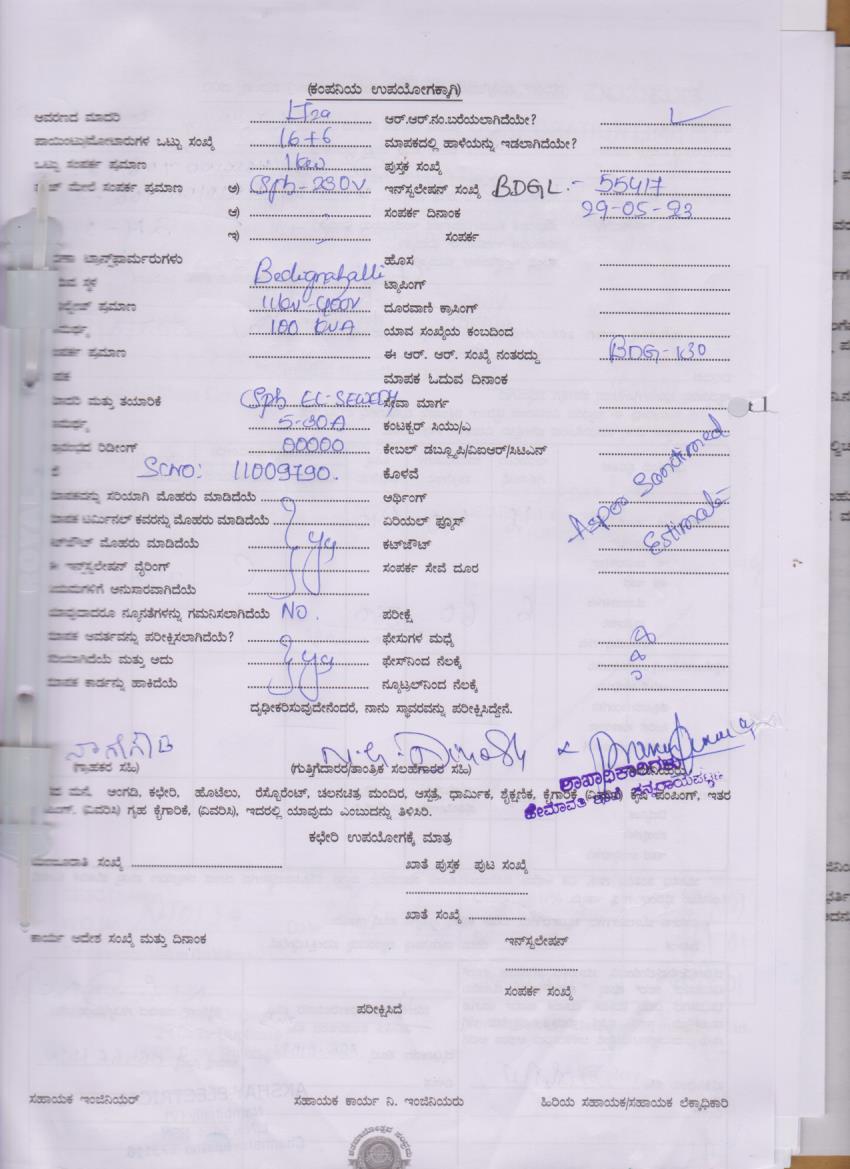 (ಕಂಪನಿಯ ಉಪಯೋಗಕ್ಕಾಗಿ)
ಆವರಣದ ಮಾದರಿ LT2a ಆರ್.ಆರ್.ನಂ.ಬರೆಯಲಾಗಿದೆಯೇ?
ಪಾಯಿಂಟು/ಮೋಟಾರುಗಳ ಒಟ್ಟು ಸಂಖ್ಯೆ 16+6 ಮಾಪಕದಲ್ಲಿ ಹಾಳೆಯನ್ನು ಇಡಲಾಗಿದೆಯೇ?
ಒಟ್ಟು ಸಂಪರ್ಕ ಪ್ರಮಾಣ 1kw ಪುಸ್ತಕ ಸಂಖ್ಯೆ
ಮೇಲೆ ಸಂಪರ್ಕ ಪ್ರಮಾಣ ಅ) 230V ಇನ್‌ಸ್ಟಲೇಷನ್ ಸಂಖ್ಯೆ BDGL - 55417
ಆ) ಸಂಪರ್ಕ ದಿನಾಂಕ 29-05-23
ಇ) ಸಂಪರ್ಕ
ಟ್ರಾನ್ಸ್‌ಫಾರ್ಮರುಗಳು ಹೊಸ
ಸ್ಥಳ Bedigrahalli ಟ್ಯಾಪಿಂಗ್
ಪ್ರಮಾಣ 11kv-400V ದೂರವಾಣಿ ಕ್ರಾಸಿಂಗ್
100 KVA ಯಾವ ಸಂಖ್ಯೆಯ ಕಂಬದಿಂದ
ಪ್ರಮಾಣ ಈ ಆರ್. ಆರ್. ಸಂಖ್ಯೆ ನಂತರದ್ದು BDG-K30
ಮಾಪಕ ಓದುವ ದಿನಾಂಕ
ಮತ್ತು ತಯಾರಿಕೆ ಸೇವಾ ಮಾರ್ಗ
5-30A ಕಂಟಕ್ಟರ್ ಸಿಯು/ಎ
ರಿಡಿಂಗ್ 00000 ಕೇಬಲ್ ಡಬ್ಲ್ಯೂಪಿ/ವಿಐಆರ್/ಸಿಟಿಎಸ್
SCNO: 11009790. ಕೊಳವೆ
ಸರಿಯಾಗಿ ಮೊಹರು ಮಾಡಿದೆಯೆ ಅರ್ಥಿಂಗ್
Asper Sanctioned
ಟರ್ಮಿನಲ್ ಕವರನ್ನು ಮೊಹರು ಮಾಡಿದೆಯೆ ಏರಿಯಲ್ ಫ್ಯೂಸ್
Estimate
ಮೊಹರು ಮಾಡಿದೆಯೆ ಕಟ್‌ಔಟ್
ಈ ಇನ್‌ಸ್ಟಲೇಷನ್ ವೈರಿಂಗ್ ಸಂಪರ್ಕ ಸೇವೆ ದೂರ
ಅನುಸಾರವಾಗಿದೆಯೆ
ನ್ಯೂನತೆಗಳನ್ನು ಗಮನಿಸಲಾಗಿದೆಯೆ NO. ಪರೀಕ್ಷೆ
ಮಾಪಕ ಆವರ್ತವನ್ನು ಪರೀಕ್ಷಿಸಲಾಗಿದೆಯೆ? ಫೇಸುಗಳ ಮಧ್ಯೆ
ಮತ್ತು ಅದು ಫೇಸ್‌ನಿಂದ ನೆಲಕ್ಕೆ
ಮಾಪಕ ಕಾರ್ಡನ್ನು ಹಾಕಿದೆಯೆ ನ್ಯೂಟ್ರಲ್‌ನಿಂದ ನೆಲಕ್ಕೆ
ದೃಢೀಕರಿಸುವುದೇನೆಂದರೆ, ನಾನು ಸ್ಥಾವರವನ್ನು ಪರೀಕ್ಷಿಸಿದ್ದೇನೆ.
(ಗ್ರಾಹಕರ ಸಹಿ) (ಗುತ್ತಿಗೆದಾರರ/ತಾಂತ್ರಿಕ ಸಲಹೆಗಾರರ ಸಹಿ)
ಶಾಖಾಧಿಕಾರಿಗಳು
ಮನೆ, ಅಂಗಡಿ, ಕಛೇರಿ, ಹೊಟೇಲು, ರೆಸ್ಟೋರೆಂಟ್, ಚಲನಚಿತ್ರ ಮಂದಿರ, ಆಸ್ಪತ್ರೆ, ಧಾರ್ಮಿಕ, ಶೈಕ್ಷಣಿಕ, ಕೈಗಾರಿಕೆ (ವಿವರಿಸಿ) ಕೃಷಿ ಪಂಪಿಂಗ್, ಇತರ
(ವಿವರಿಸಿ) ಗೃಹ ಕೈಗಾರಿಕೆ, (ವಿವರಿಸಿ), ಇದರಲ್ಲಿ ಯಾವುದು ಎಂಬುದನ್ನು ತಿಳಿಸಿರಿ.
ಕಛೇರಿ ಉಪಯೋಗಕ್ಕೆ ಮಾತ್ರ
ಸಂಖ್ಯೆ ಖಾತೆ ಪುಸ್ತಕ ಪುಟ ಸಂಖ್ಯೆ
ಖಾತೆ ಸಂಖ್ಯೆ
ಕಾರ್ಯ ಆದೇಶ ಸಂಖ್ಯೆ ಮತ್ತು ದಿನಾಂಕ ಇನ್‌ಸ್ಟಲೇಷನ್
ಸಂಪರ್ಕ ಸಂಖ್ಯೆ
ಪರೀಕ್ಷಿಸಿದೆ
ಸಹಾಯಕ ಇಂಜಿನಿಯರ್ ಸಹಾಯಕ ಕಾರ್ಯ ನಿ. ಇಂಜಿನಿಯರು ಹಿರಿಯ ಸಹಾಯಕ/ಸಹಾಯಕ ಲೆಕ್ಕಾಧಿಕಾರಿ